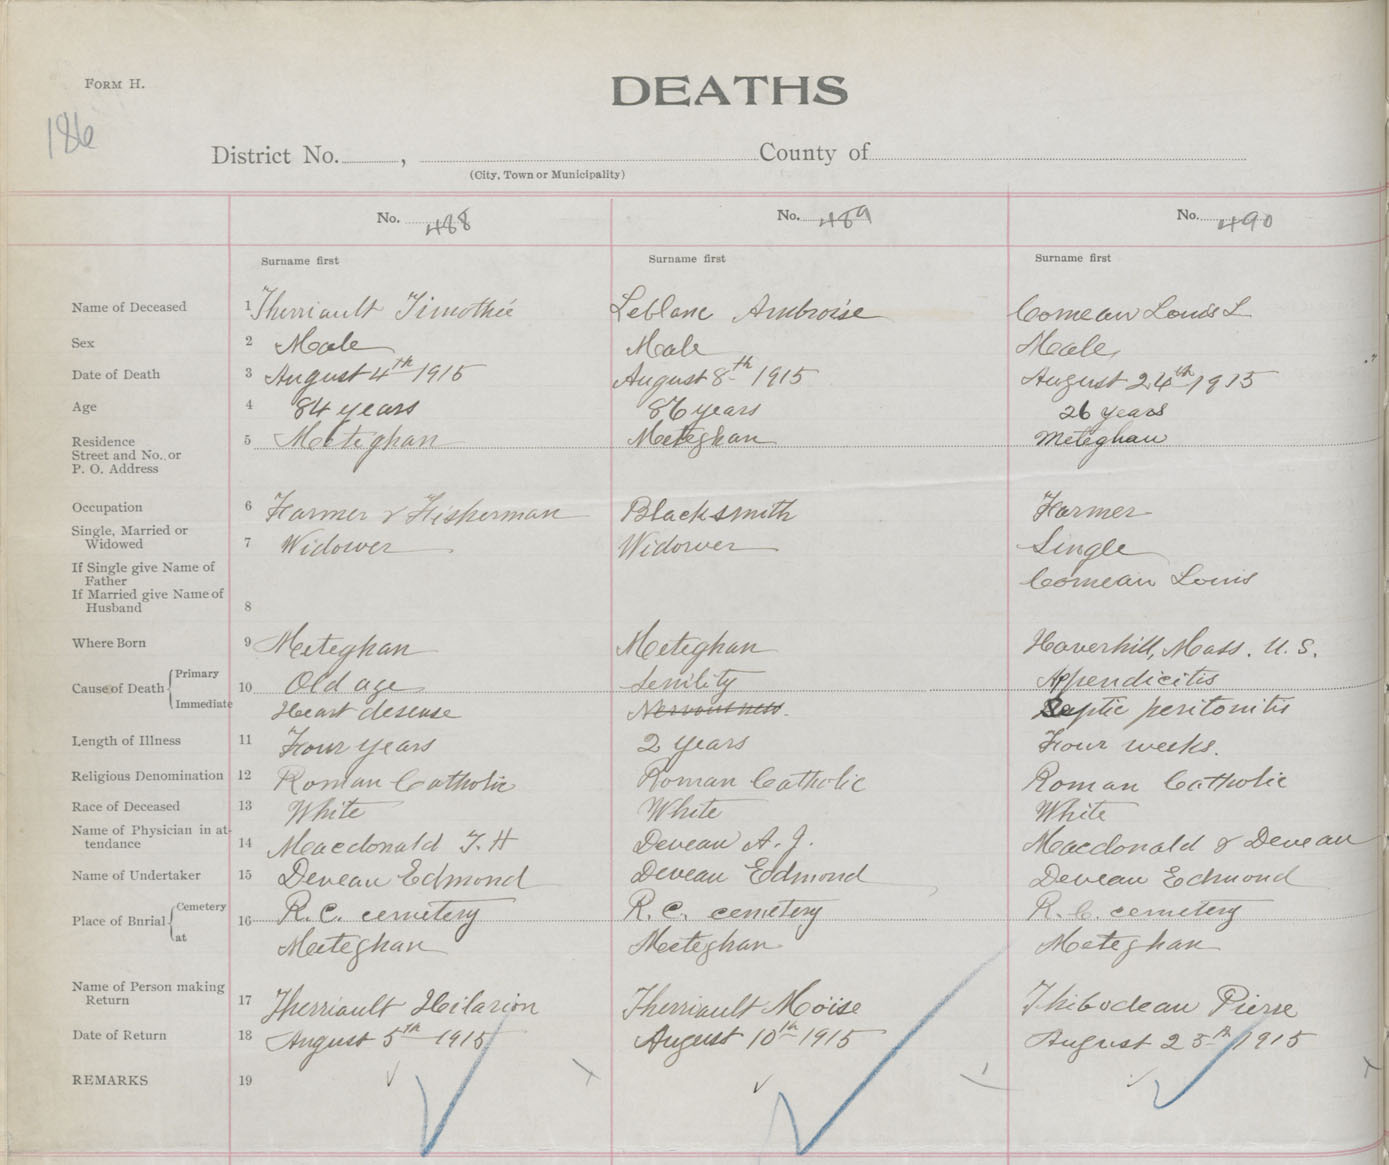 FORM H.
DEATHS
186
District No. , County of
(City, Town or Municipality)
No. 488 No. 489 No. 490
Surname first Surname first Surname first
Name of Deceased 1 Therriault Timothée Leblanc Ambroise Comeau Louis L
Sex 2 Male Male Male
Date of Death 3 August 4th 1915 August 8th 1915 August 24th 1915
Age 4 84 years 86 years 26 years
Residence 5 Meteghan Meteghan Meteghan
Street and No. or
P. O. Address
Occupation 6 Farmer & Fisherman Blacksmith Farmer
Single, Married or
Widowed 7 Widower Widower Single
If Single give Name of
Father Comeau Louis
If Married give Name of
Husband 8
Where Born 9 Meteghan Meteghan Haverhill, Mass. U. S.
Cause of Death Primary 10 Old age Senility Appendicitis
Immediate Heart desease Nervousness. Septic peritonitis
Length of Illness 11 Four years 2 years Four weeks.
Religious Denomination 12 Roman Catholic Roman Catholic Roman Catholic
Race of Deceased 13 White White White
Name of Physician in at-
tendance 14 Macdonald T. H Deveau A. J. Macdonald & Deveau
Name of Undertaker 15 Deveau Edmond Deveau Edmond Deveau Edmond
Place of Burial Cemetery 16 R. C. cemetery R. C. cemetery R. C. cemetery
at Meteghan Meteghan Meteghan
Name of Person making
Return 17 Therriault Hilarion Therriault Moïse Thibodeau Pierre
Date of Return 18 August 5th 1915 August 10th 1915 August 25th 1915
REMARKS 19